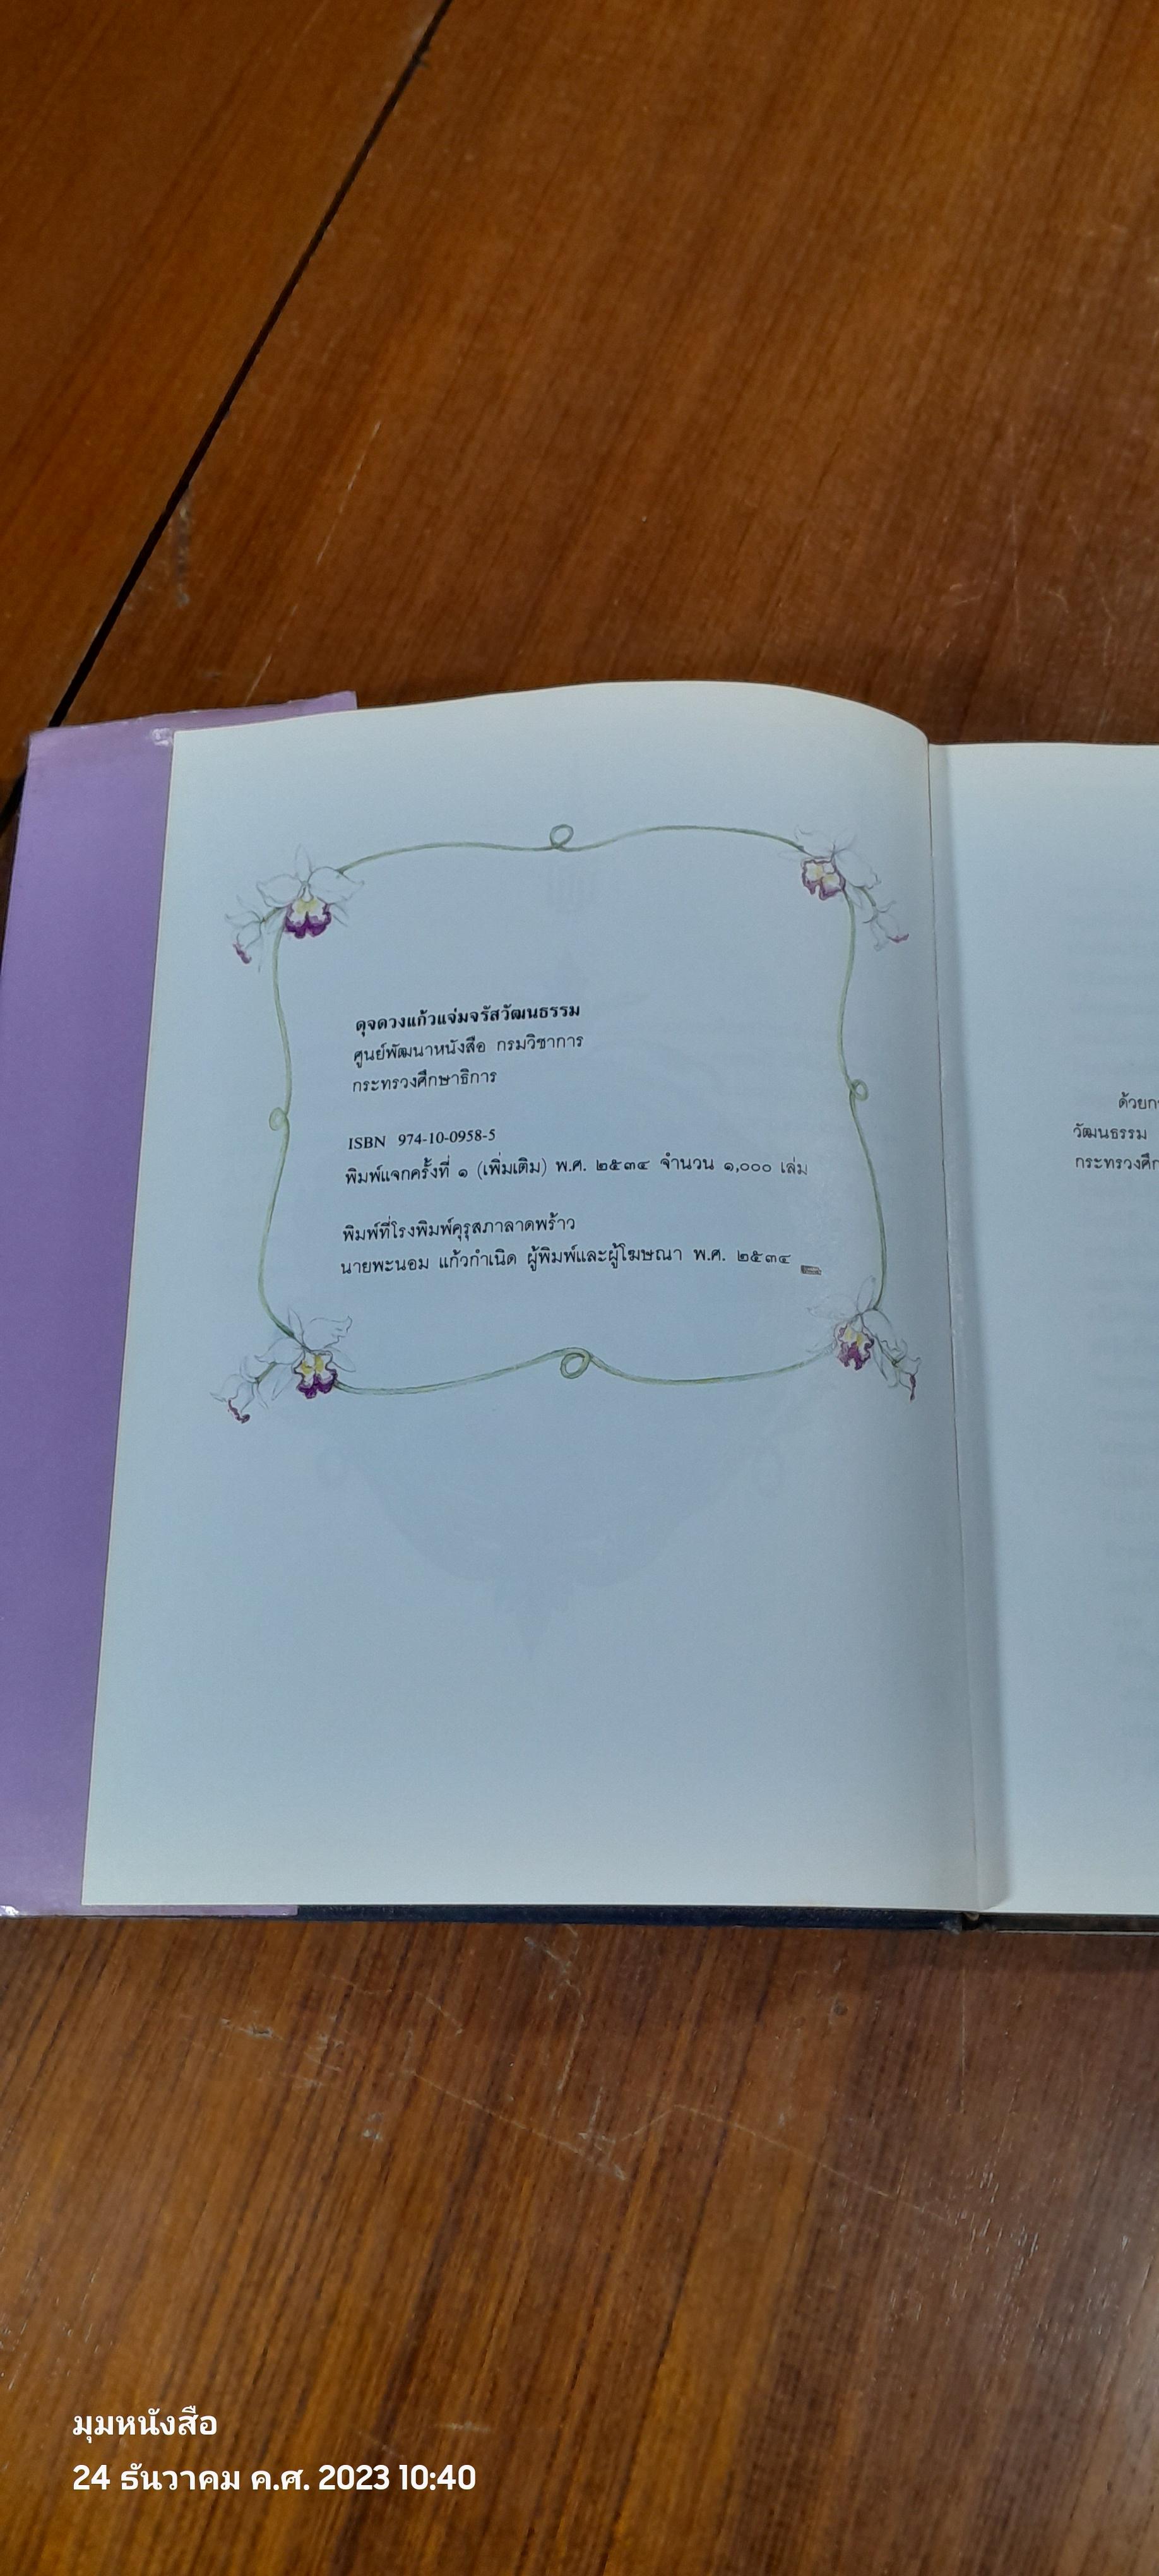 ดุจดวงแก้วแจ่มจรัสวัฒนธรรม
ศูนย์พัฒนาหนังสือ กรมวิชาการ
กระทรวงศึกษาธิการ
ISBN 974-10-0958-5
พิมพ์แจกครั้งที่ ๑ (เพิ่มเติม) พ.ศ. ๒๕๓๔ จำนวน ๑,๐๐๐ เล่ม
พิมพ์ที่โรงพิมพ์คุรุสภาลาดพร้าว
นายพะนอม แก้วกำเนิด ผู้พิมพ์และผู้โฆษณา พ.ศ. ๒๕๓๔
ด้วยก
วัฒนธรรม
กระทรวงศึก
มุมหนังสือ
24 ธันวาคม ค.ศ. 2023 10:40